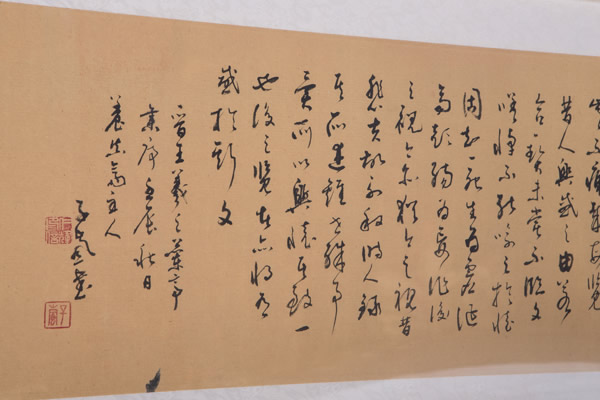 不痛哉每覽
昔人興感之由若
合一契未嘗不臨文
嗟悼不能喻之於懷
固知一死生為虛誕
齊彭殤為妄作後
之視今亦猶今之視昔
悲夫故列敘時人錄
其所述雖世殊事
異所以興懷其致一
也後之覽者亦將有
感於斯文
晉王羲之蘭亭
集序壬辰秋日
養真齋主人
子